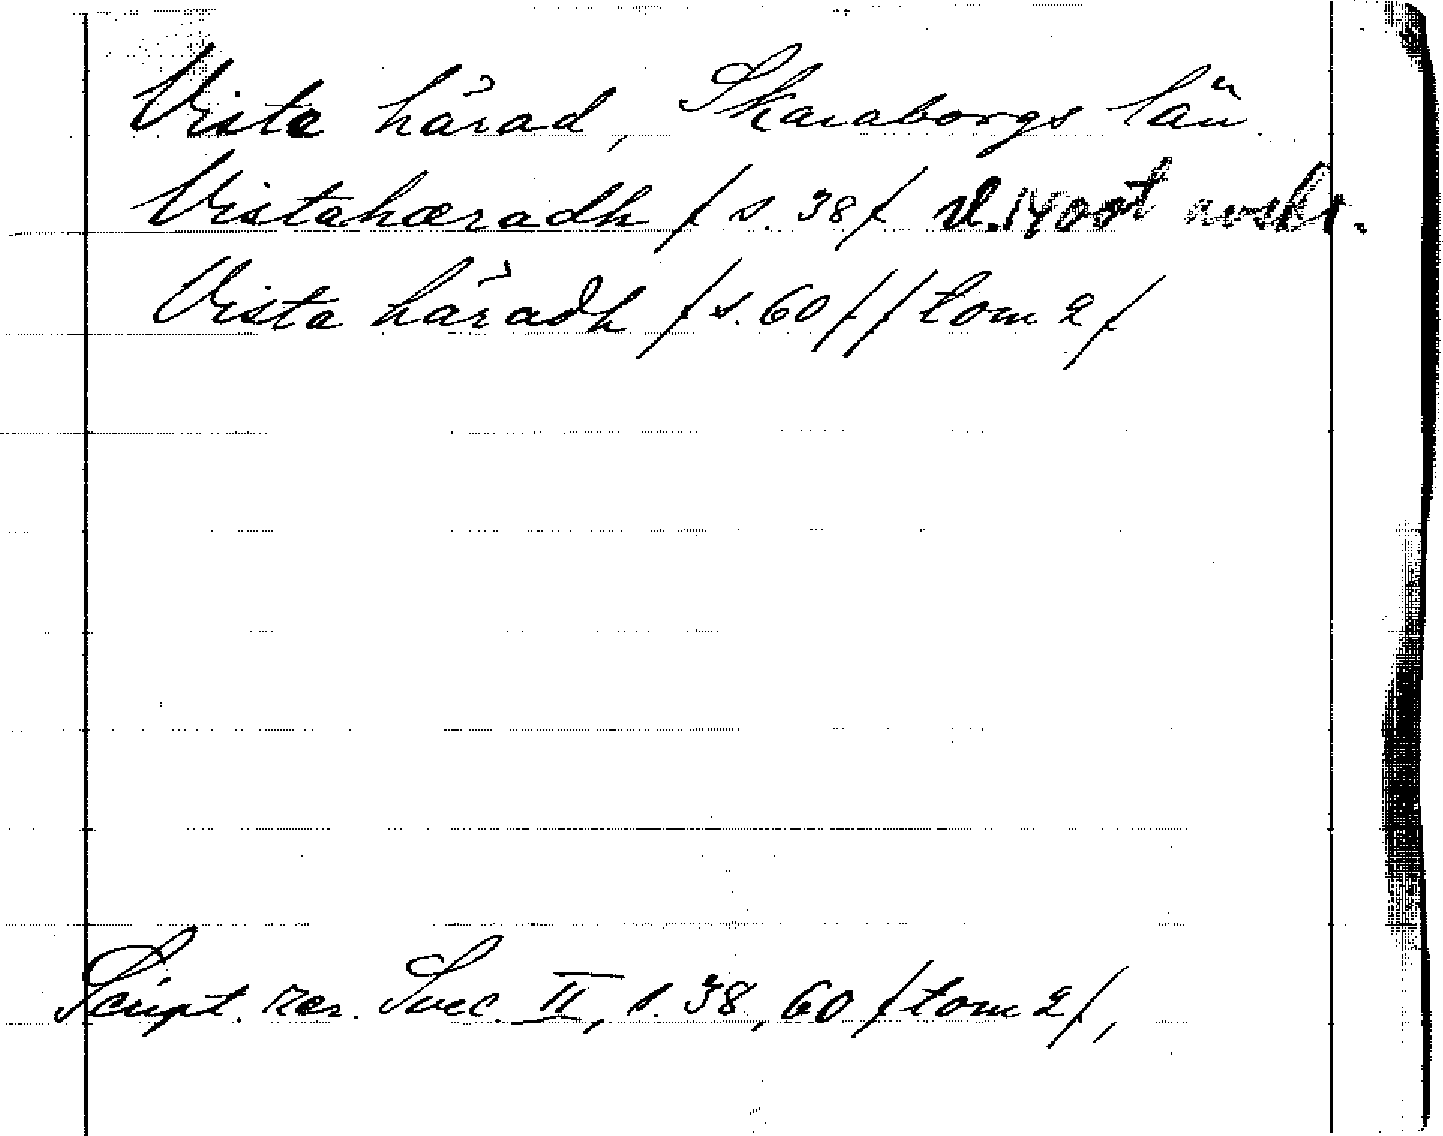 Vista härad, Skaraborgs län.
Vistahæradh / s. 38 / sl. 1400 t avskr.
Vista häradh / s. 60 / / tom 2 /
Script. rer. Svec. II, s. 38, 60 / tom 2 /,